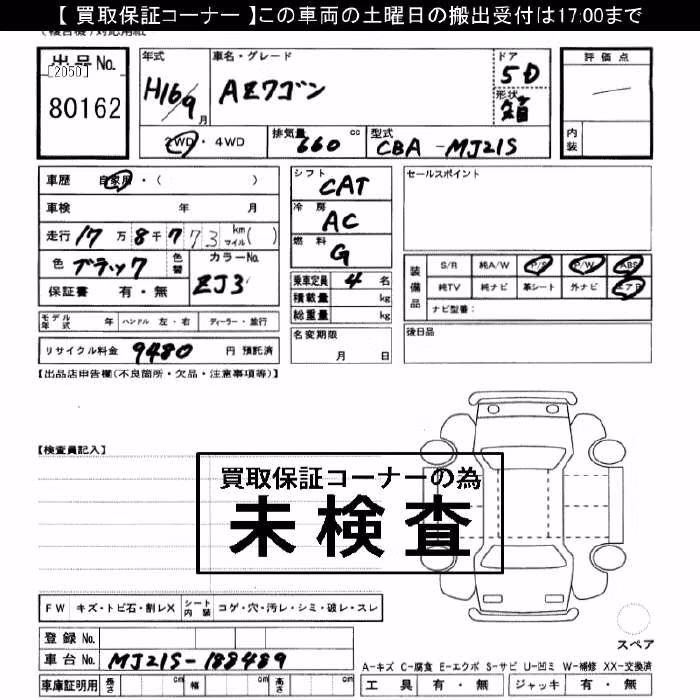 【 買取保証コーナー 】この車両の土曜日の搬出受付は17:00まで
出品No.
[2050]
80162
年式
H16/9月
車名・グレード
AZワゴン
ドア
5D
形状
箱
評価点
内装
2WD・4WD
排気量 660 cc
型式
CBA-MJ21S
車歴 自家用・( )
車検 年 月
走行 17万8千773 km マイル( )
色 ブラック 色替
カラーNo.
ZJ3
保証書 有・無
シフト
CAT
冷房
AC
燃料
G
乗車定員 4 名
積載量 kg
総重量 kg
セールスポイント
装備品
S/R 純A/W P/S P/W ABS
純TV 純ナビ 革シート 外ナビ エアB
ナビ型番:
モデル年式 年 ハンドル 左・右 ディーラー・並行
名変期限
月 日
後日品
リサイクル料金 9480 円 預託済
【出品店申告欄(不良箇所・欠品・注意事項等)】
【検査員記入】
買取保証コーナーの為
未検査
FW キズ・トビ石・割レX シート内装 コゲ・穴・汚レ・シミ・破レ・スレ
スペア
登録No.
車台No. MJ21S-188489
A-キズ C-腐食 E-エクボ S-サビ U-凹ミ W-補修 XX-交換済
車庫証明用 長さ cm 幅 cm 高さ cm
工具 有・無 ジャッキ 有・無